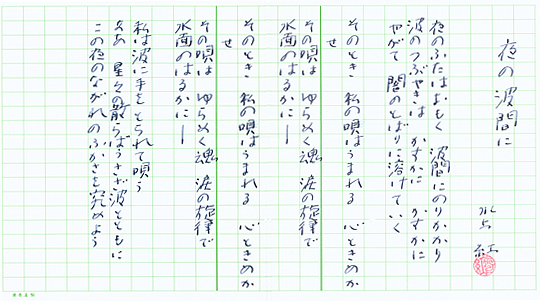 夜の波間に
紅
夜のふたはおもく 波間にのりかかり
波のつぶやきは かすかに かすかに
やがて 闇のとばりに溶けていく
そのとき 私の唄はうまれる 心ときめか
せ
その唄は ゆらめく魂 涙の旋律で
水面のはるかに―
そのとき 私の唄はうまれる 心ときめか
せ
その唄は ゆらめく魂 涙の旋律で
水面のはるかに―
私は波に手をとられて唄う
ああ 星々の散らばうさざ波とともに
この夜のながれのふかさを究めよう